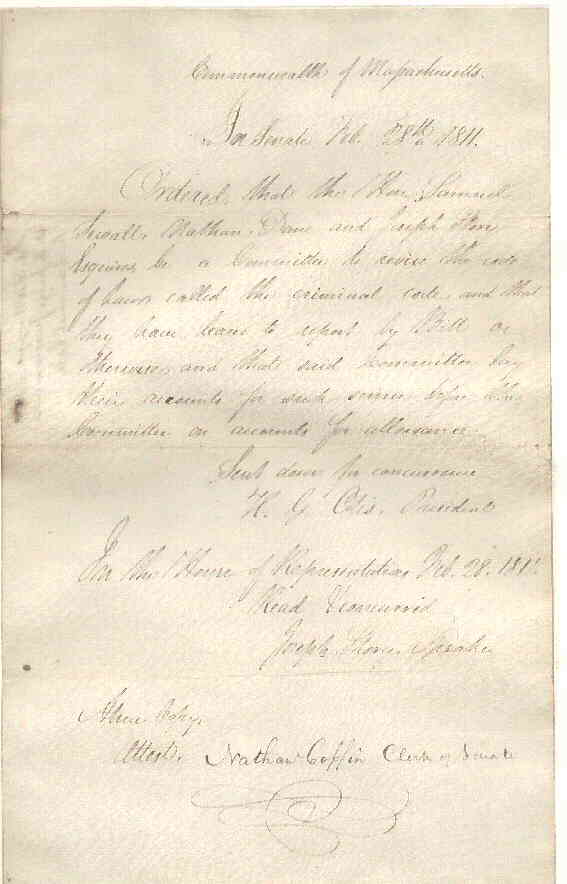 Commonwealth of Massachusetts.
In Senate Feb. 28th 1811.
Ordered, that the Hon. Samuel
Sewall, Nathan Dane and Joseph Story
Esquires, be a Committee to revise the code
of laws called the criminal code, and that
they have leave to report by Bill or
otherwise, and that said committee lay
their accounts for such service before the
Committee on accounts for allowance.
Sent down for concurrence
H. G. Otis, President
In the House of Representatives Feb. 28. 1811
Read & concurred
Joseph Story, Speaker
A true Copy,
Attest, Nathan Coffin Clerk of Senate